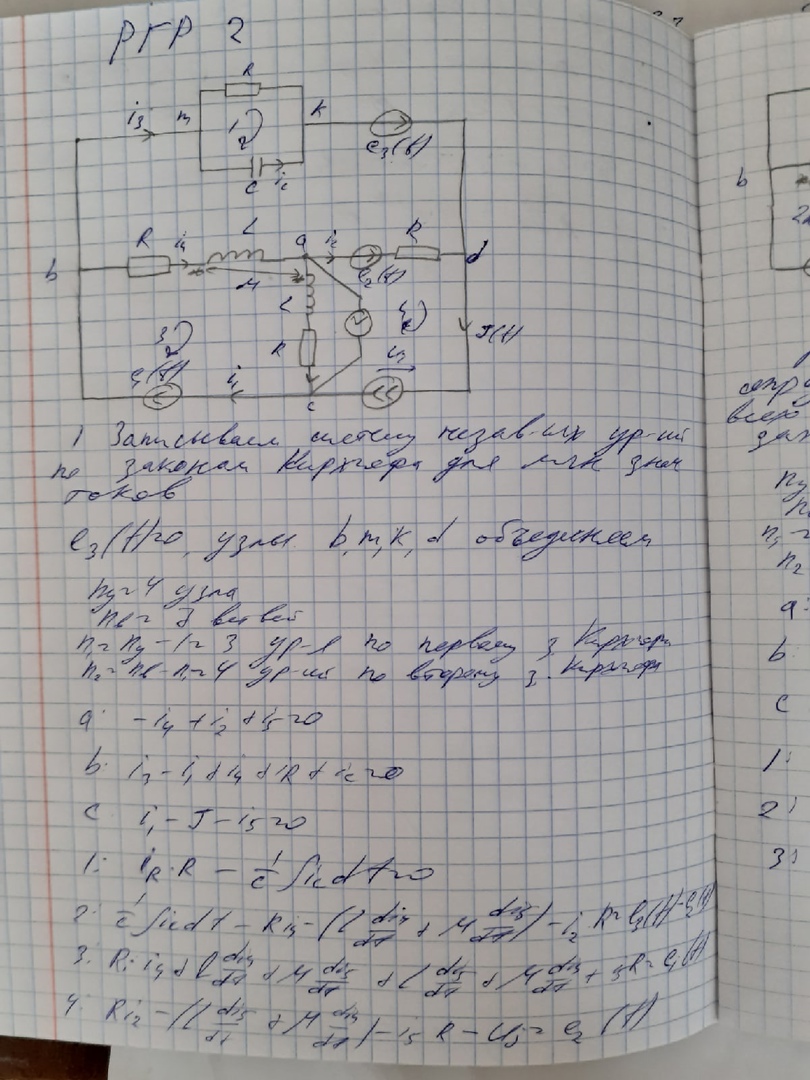 РГР 2
R
i₃ m 1 k
e₃(t)
C i_c
2
R i₄ L a i₂ R
b M e₂(t) d
L
3 R 4 J(t)
e₁(t) i₁ c U_J
1 Записываем систему незав-ых ур-ий
по законам Кирхгофа для мгн знач
токов
e₃(t)=0, узлы b, m, k, d объединяем
nу=4 узла
nв=7 ветвей
n₁=nу-1=3 ур-я по первому з. Кирхгофа
n₂=nв-n₁=4 ур-ий по второму з. Кирхгофа
a: -i₄+i₂+i₅=0
b: i₃-i₁+i₄+iR+ic=0
c i₁-J-i₅=0
1: i_R·R - 1/c ∫ic dt=0
2: 1/c ∫ic dt - Ri₄-(L di₄/dt + M di₅/dt)-i₂R=e₃(t)-e₂(t)
3: R·i₄+L di₄/dt+M di₅/dt+L di₅/dt+M di₄/dt+i₅R=e₁(t)
4: Ri₂-(L di₅/dt+M di₄/dt)-i₅R-U_J=e₂(t)
b
a:
b:
c
1:
2:
3: